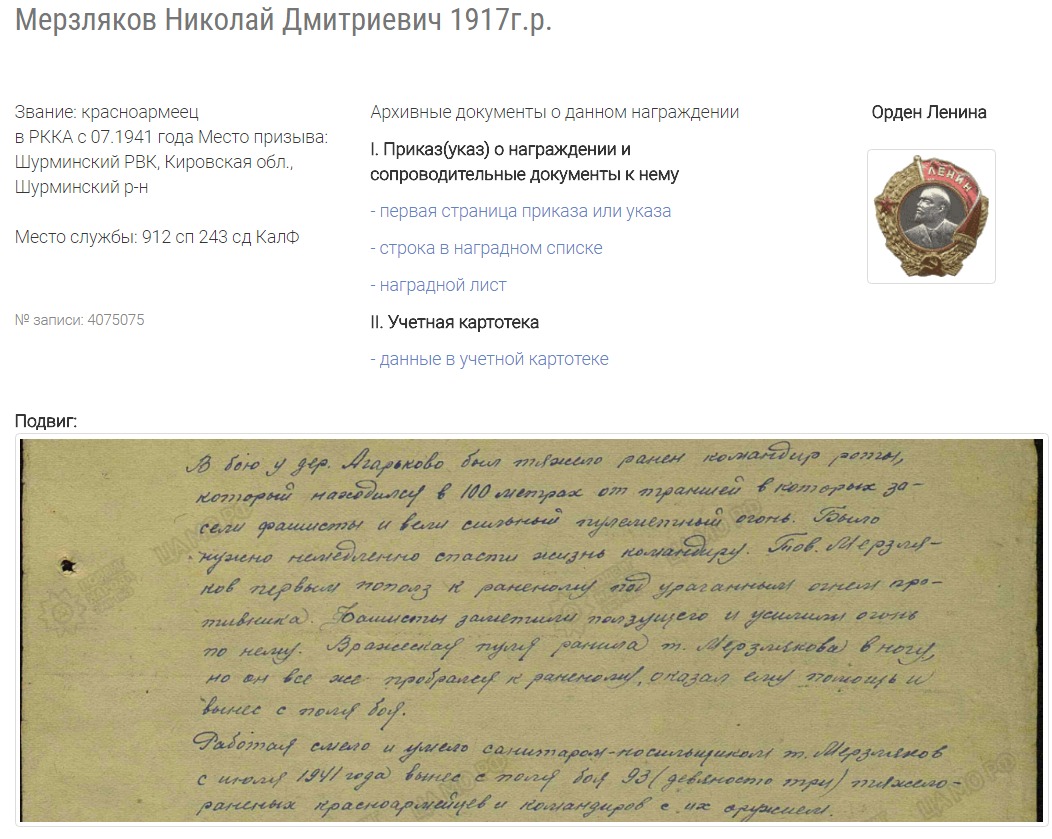 Мерзляков Николай Дмитриевич 1917г.р.
Звание: красноармеец
в РККА с 07.1941 года Место призыва:
Шурминский РВК, Кировская обл.,
Шурминский р-н
Место службы: 912 сп 243 сд КалФ
№ записи: 4075075
Архивные документы о данном награждении
I. Приказ(указ) о награждении и
сопроводительные документы к нему
- первая страница приказа или указа
- строка в наградном списке
- наградной лист
II. Учетная картотека
- данные в учетной картотеке
Орден Ленина
ЛЕНИН
Подвиг:
В бою у дер. Агарьково был тяжело ранен командир роты,
который находился в 100 метрах от траншей в которых за-
сели фашисты и вели сильный пулеметный огонь. Было
нужно немедленно спасти жизнь командиру. Тов. Мерзля-
ков первым пополз к раненому под ураганным огнем про-
тивника. Фашисты заметили ползущего и усилили огонь
по нему. Вражеская пуля ранила т. Мерзлякова в ногу,
но он все же пробрался к раненому, оказал ему помощь и
вынес с поля боя.
Работая смело и умело санитаром-носильщиком т. Мерзляков
с июля 1941 года вынес с поля боя 93 (девяносто три) тяжело-
раненых красноармейцев и командиров с их оружием.
ЦАМО РФ
ЦАМО РФ
ЦАМО РФ
ЦАМО РФ